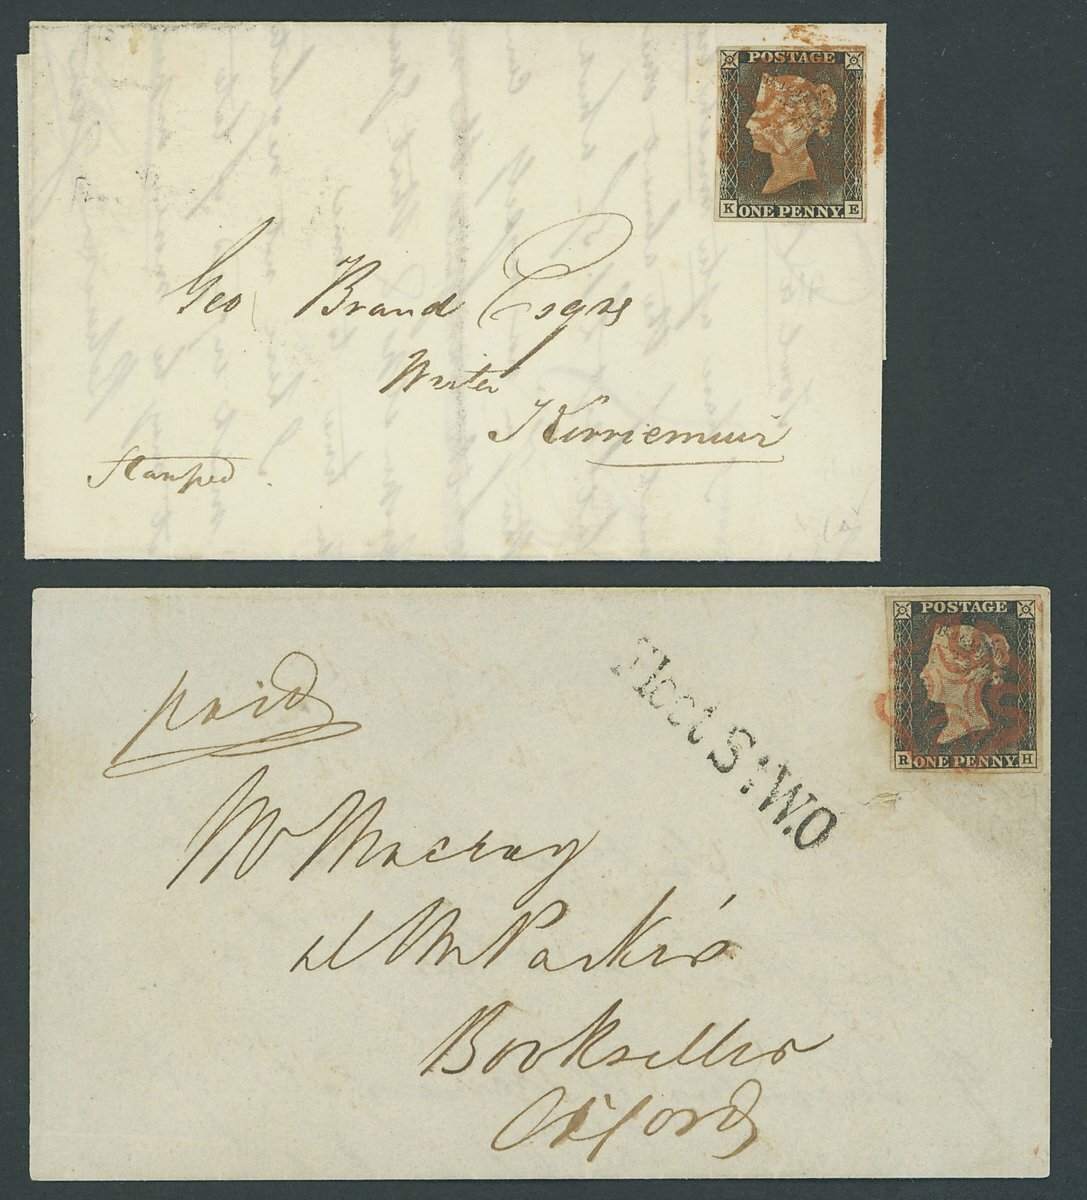 POSTAGE
K ONE PENNY E
Geo Brand Esqre
Writer
Kirriemuir
Stamped
POSTAGE
R ONE PENNY H
Fleet St W.O
paid
Mr Macray
at Mr Parker's
Bookseller
Oxford